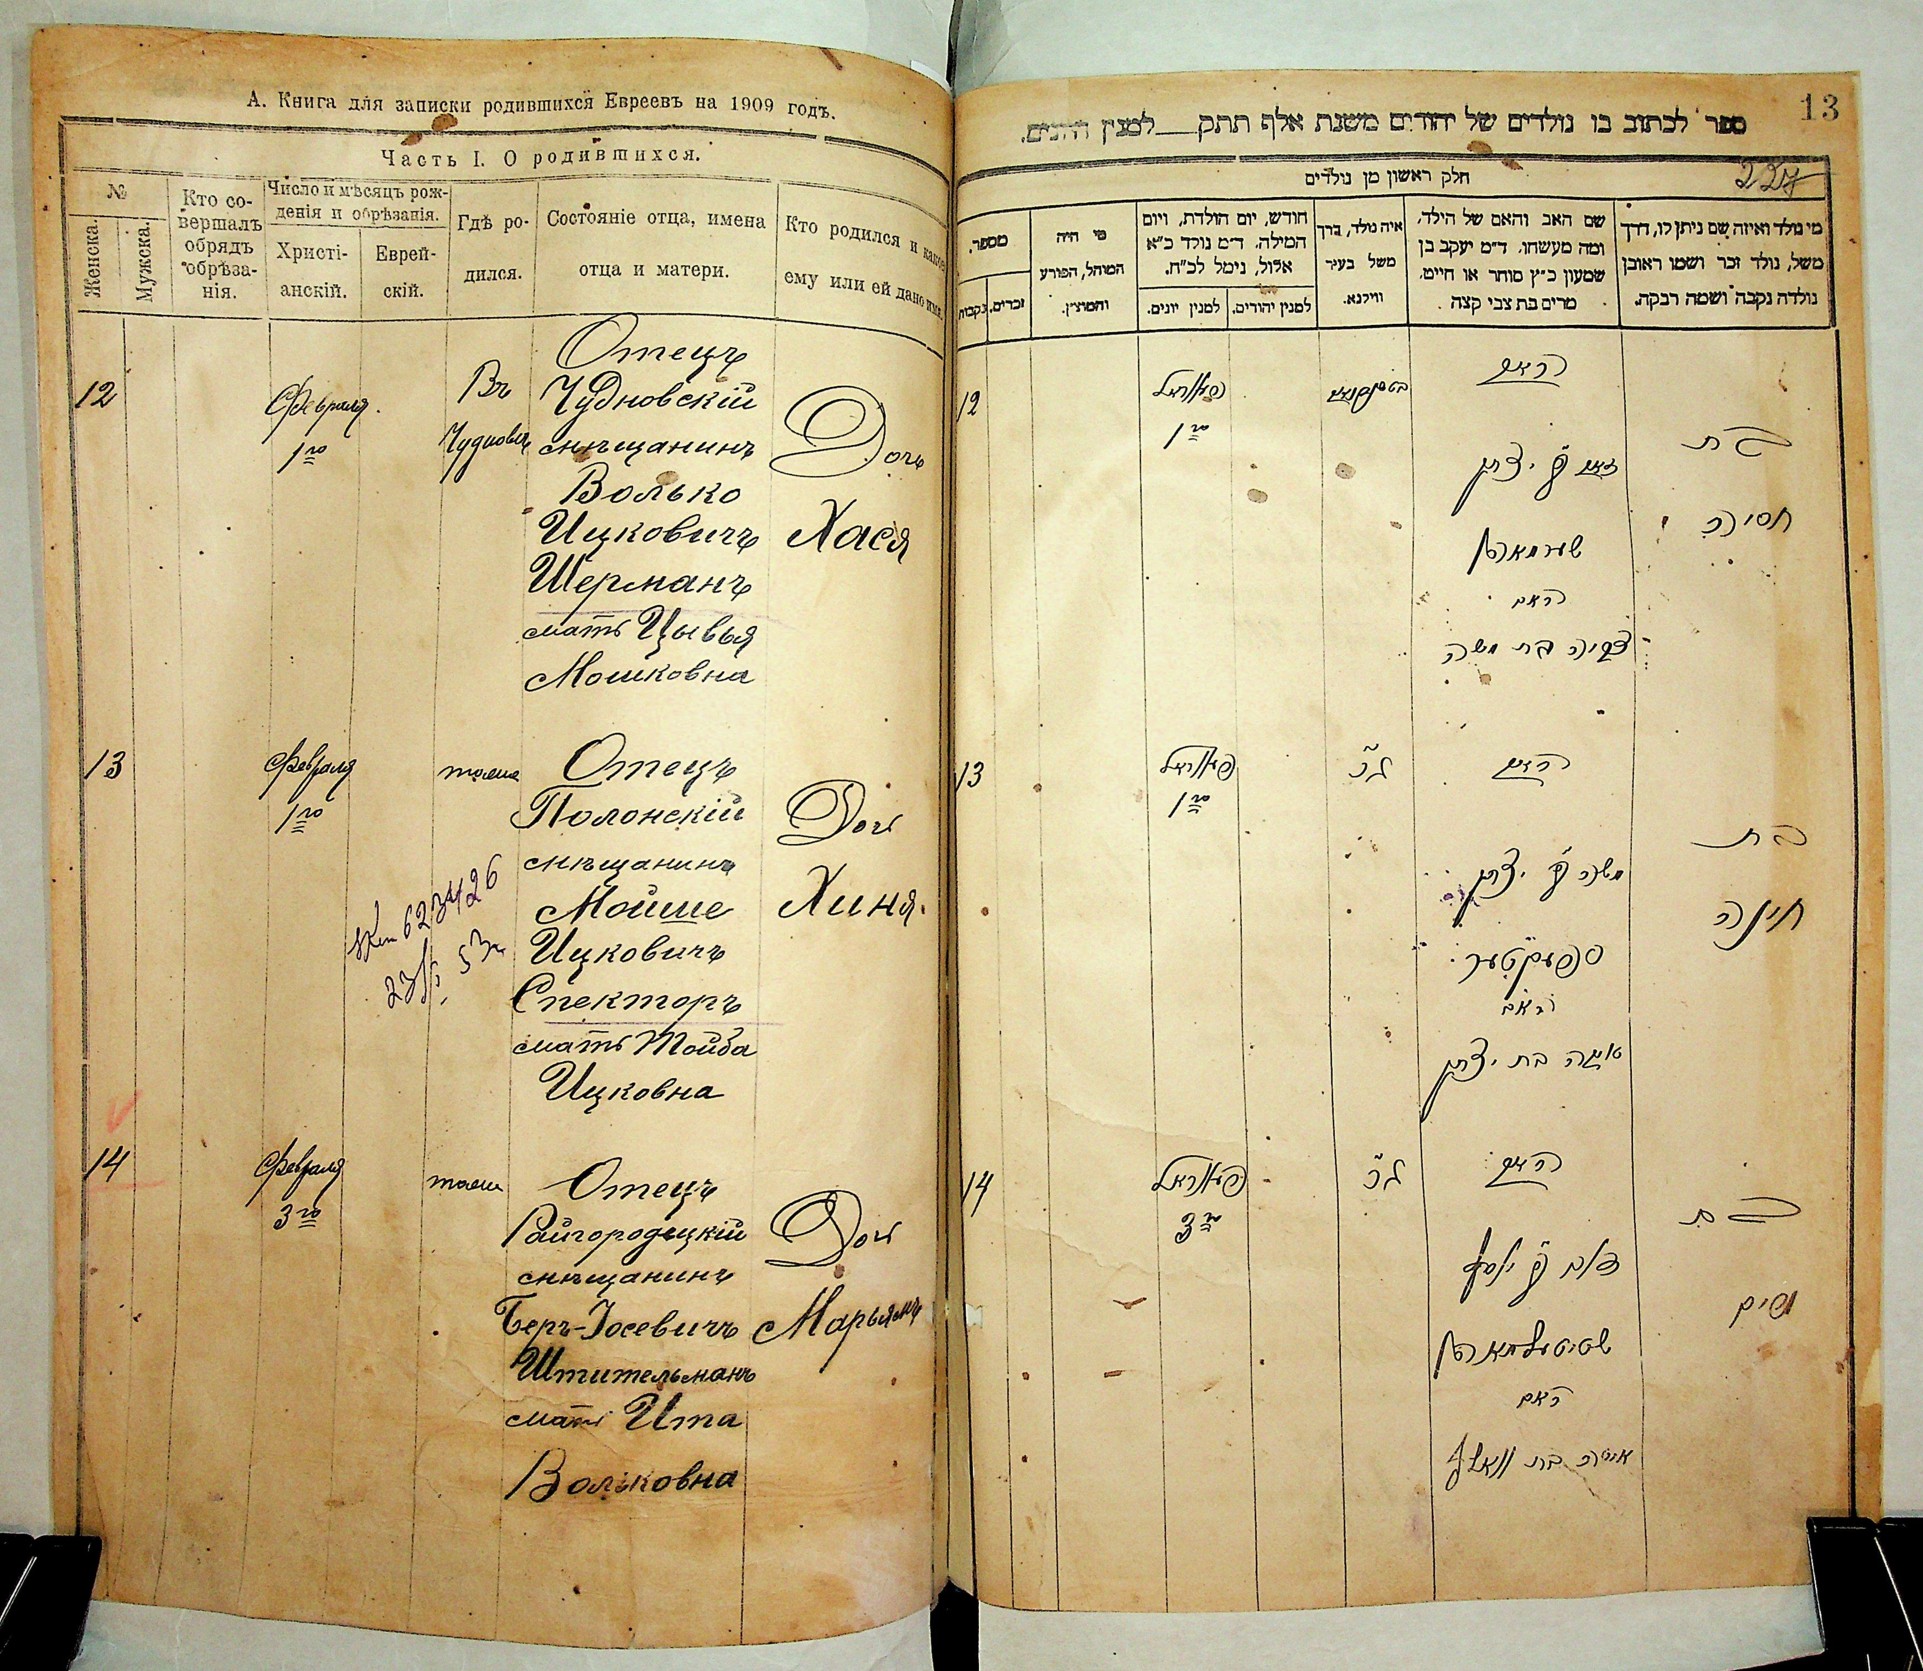 А. Книга для записки родившихся Евреевъ на 1909 годъ.
Часть I. О родившихся.
№
Женска.
Мужска.
Кто со-
вершалъ
обрядъ
обрѣза-
нія.
Число и мѣсяцъ рож-
денія и обрѣзанія.
Христі-
анскій.
Еврей-
скій.
Гдѣ ро-
дился.
Состояніе отца, имена
отца и матери.
Кто родился и какое
ему или ей дано имя.
12
Февраля
1го
Въ
Чудновѣ
Отецъ
Чудновскій
мѣщанинъ
Волько
Ицковичъ
Шерманъ
мать Цывья
Мошковна
Дочь
Хася
13
Февраля
1го
тоже
Отецъ
Полонскій
мѣщанинъ
Мойше
Ицковичъ
Спекторъ
мать Тойба
Ицковна
Дочь
Хиня.
14
Февраля
3го
тоже
Отецъ
Райгородецкій
мѣщанинъ
Беръ-Іосевичъ
Штительманъ
мать Ита
Вольковна
Дочь
Марьямъ
13
ספר לכתוב בו נולדים של יהודים משנת אלף תתק__למנין היונים.
227
חלק ראשון מן נולדים
מספר.
זכרים.
נקבות
מי היה
המוהל, הפורע
והמוצץ.
חודש, יום הולדת, ויום
המילה. ד״מ נולד כ״א
אלול, נימל לכ״ח.
למנין יונים.
למנין יהודים.
איה נולד, בדך
משל בעיר
ווילנא.
שם האב והאם של הילד,
ומה מעשהו. ד״מ יעקב בן
שמעון כ״ץ סוחר או חייט,
מרים בת צבי קצה
מי נולד ואיזה שם ניתן לו, דרך
משל, נולד זכר ושמו ראובן
נולדה נקבה ושמה רבקה.
12
פעווראל
1го
האב
זאב ב׳ יצחק
שערמאן
האם
צביה בת משה
בת
חסיה
13
פעווראל
1го
האב
משה ב׳ יצחק
ספעקטער
האם
טובה בת יצחק
בת
חינה
14
פעווראל
3го
האב
דוב ב׳ יוסף
שטיטעלמאן
האם
איטה בת וואלף
בת
מרים